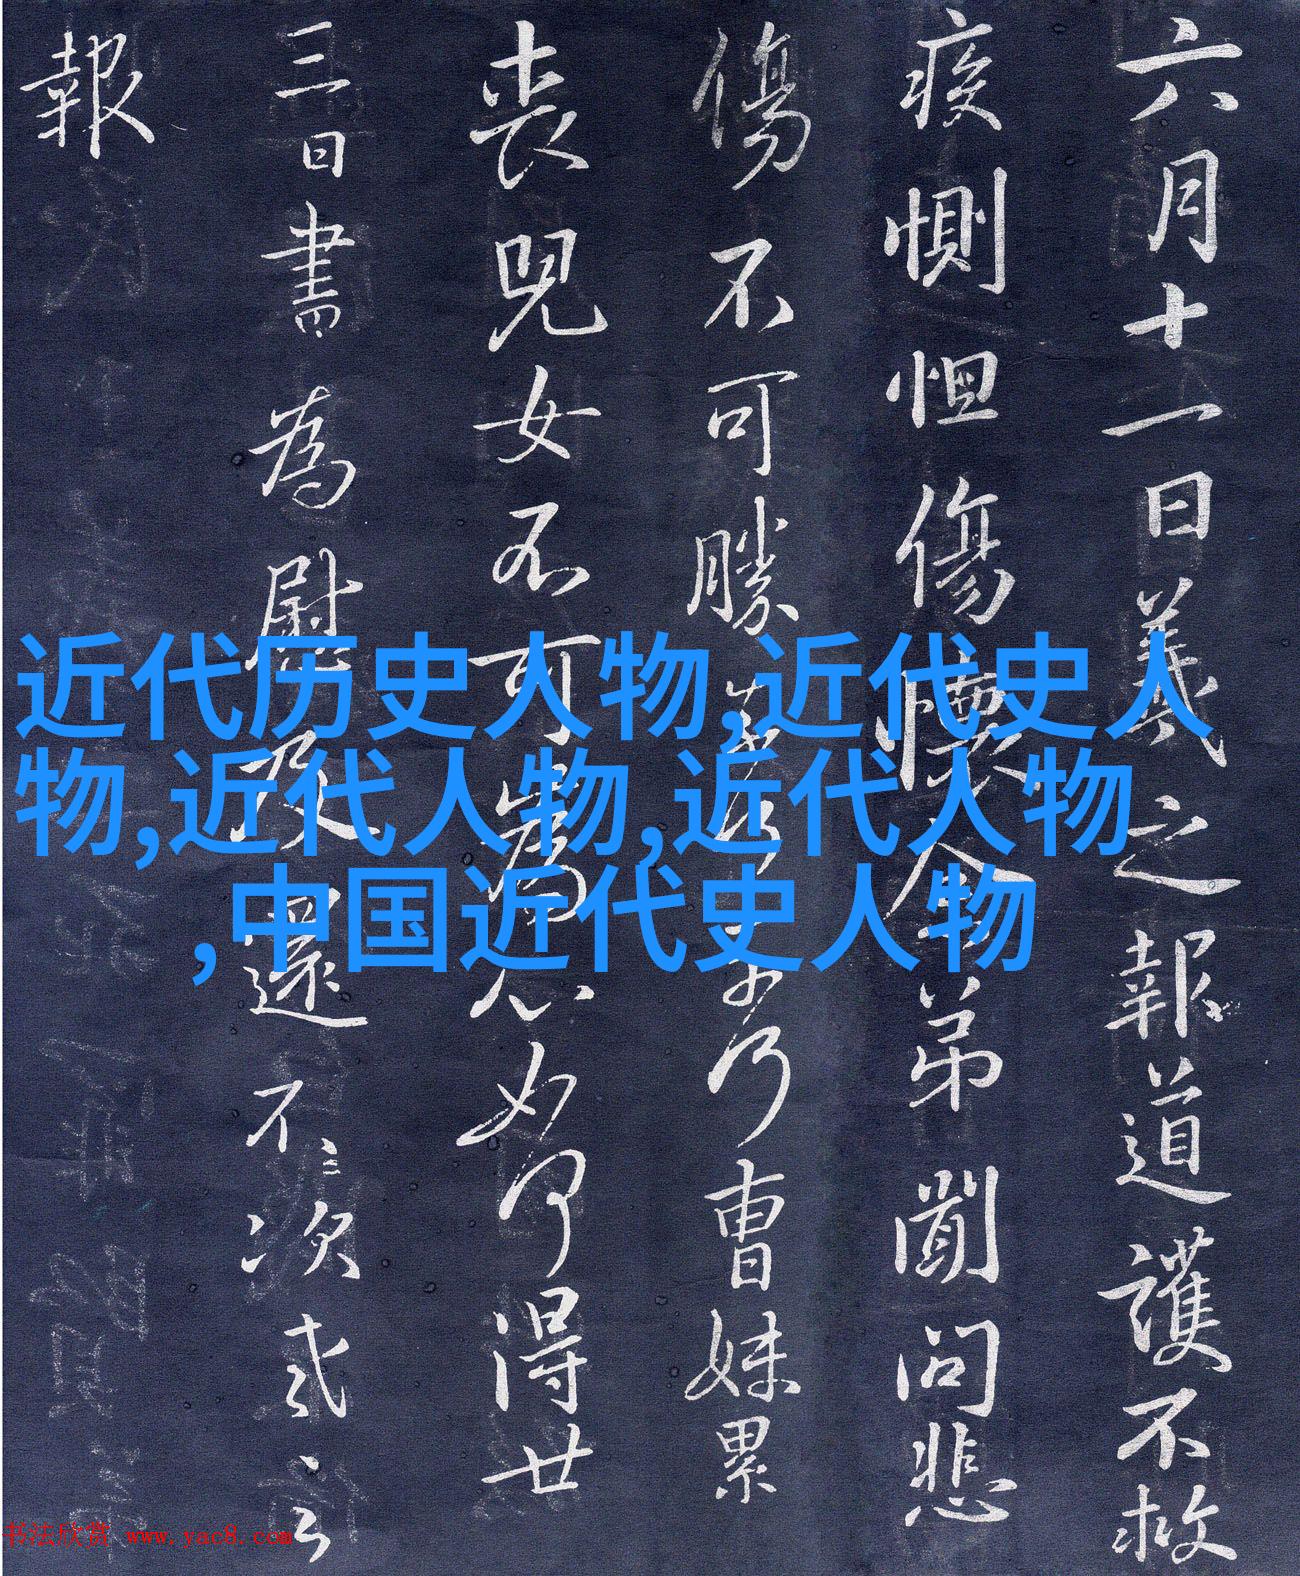 六月十一日羲之報道護不救
疾惻怛傷懷念弟聞問悲
傷不可勝乃曹妹累
喪兒女不可為心如何得廿
三日書為慰及還不次
報
近代历史人物,近代史人
物,近代人物,近代人物
,中国近代史人物
书法欣赏 www.yac8.com